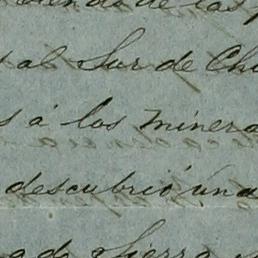 de las
al Sur de Chi
s á los minera
descubrió una
Sierra